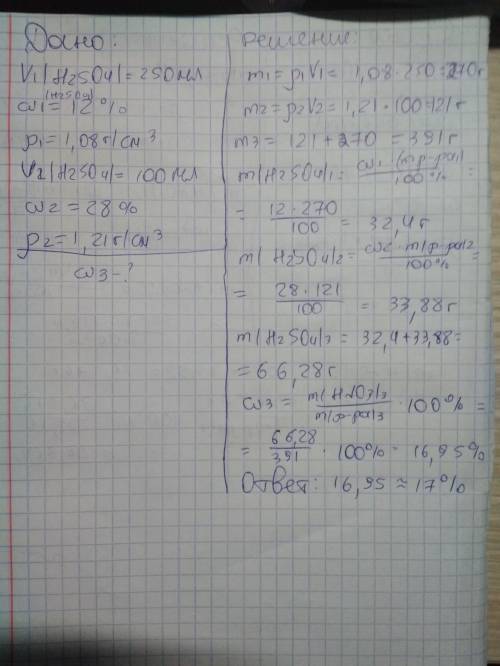 Дано:
V1(H2SO4)=250мл
ω1(H2SO4)=12%
ρ1=1,08г/см³
V2(H2SO4)=100мл
ω2=28%
ρ2=1,21г/см³
ω3-?
Решение:
m1=ρ1V1=1,08·250=270г
m2=ρ2V2=1,21·100=121г
m3=121+270=391г
m(H2SO4)1=ω1·m(р-ра)1/100%=
=12·270/100=32,4г
m(H2SO4)2=ω2·m(р-ра)2/100%=
=28·121/100=33,88г
m(H2SO4)3=32,4+33,88=
=66,28г
ω3=m(HNO3)3/m(р-ра)3·100%=
=66,28/391·100%=16,95%
Ответ: 16,95≈17%